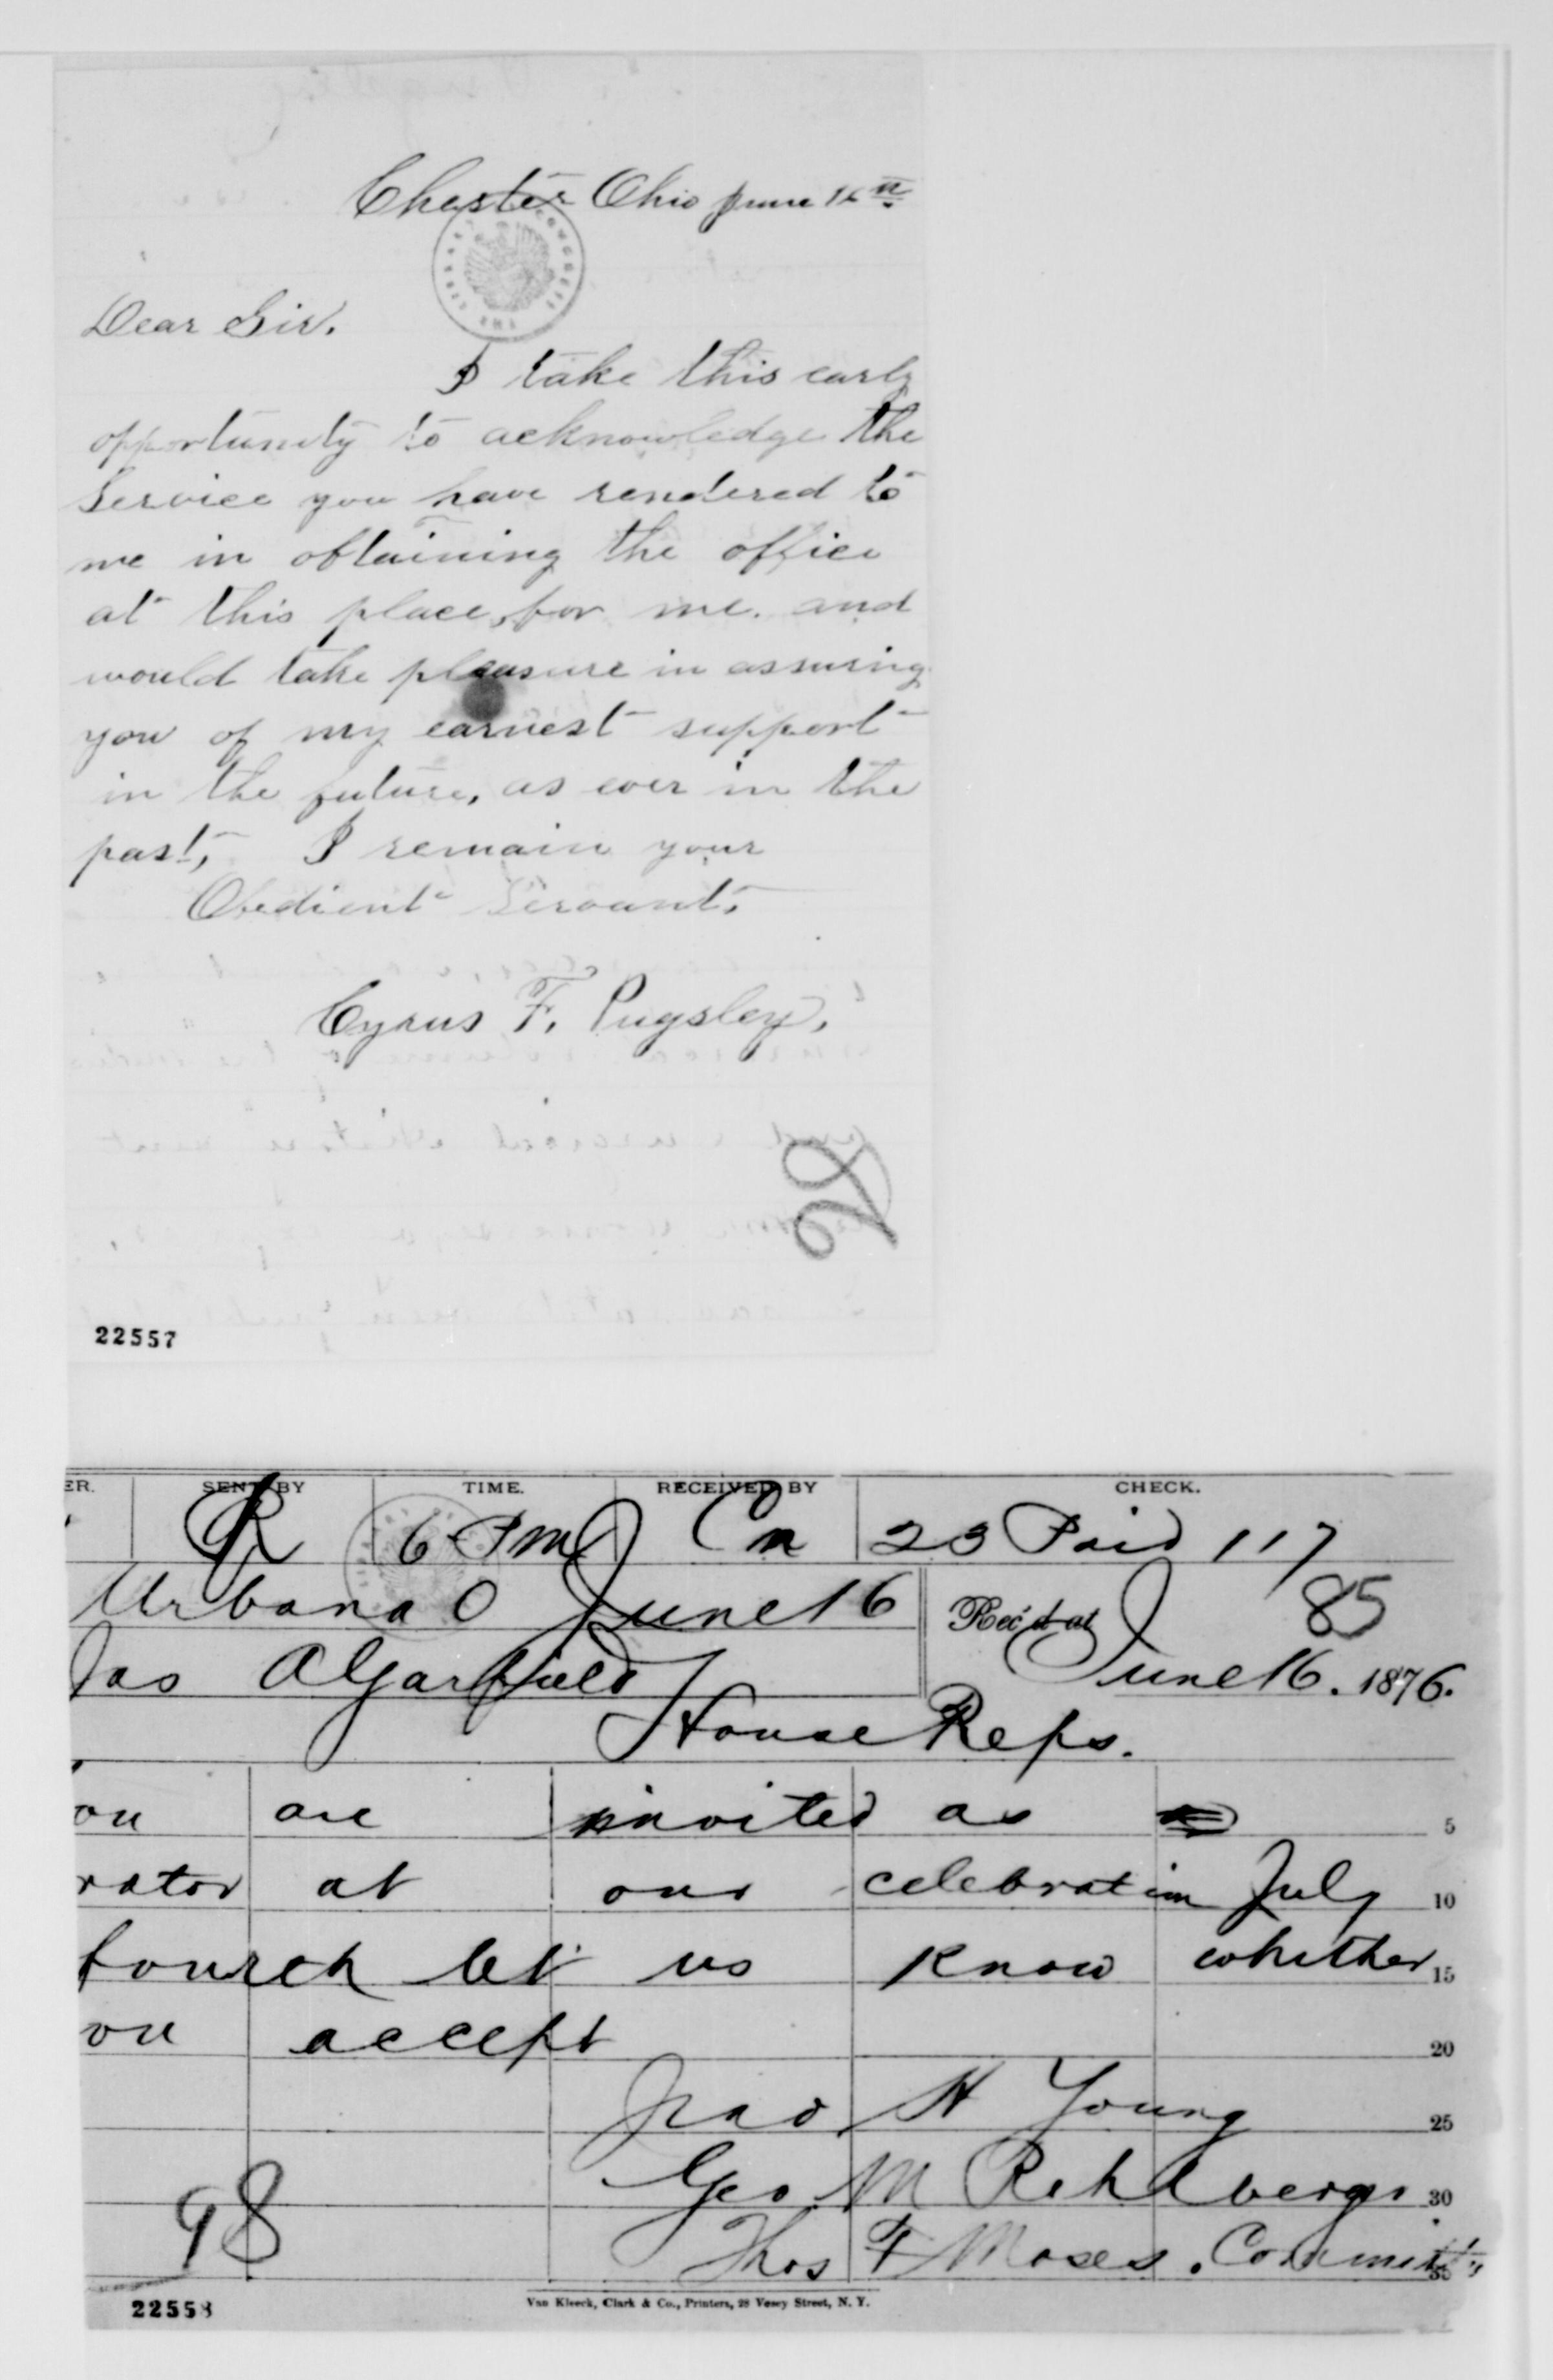 Chester Ohio June 16th
Dear Sir.
I take this early
opportunity to acknowledge the
Service you have rendered to
me in obtaining the office
at this place, for me. and
would take pleasure in assuring
you of my earnest support
in the future, as ever in the
past, I remain your
Obedient Servant,
Cyrus F. Pugsley,
22557
ER. SENT BY TIME. RECEIVED BY CHECK.
R 6 PM Cn 23 Paid 117
Urbana O June 16 Rec'd at 85
Jas A Garfield June 16. 1876.
House Reps.
ou are invited as 5
rator at our celebration July 10
fourth let us know whether 15
ou accept 20
Jno H Young 25
Geo M 30
98 Thos F Moses. Committee 35
22558 Van Kleeck, Clark & Co., Printers, 28 Vesey Street, N. Y.